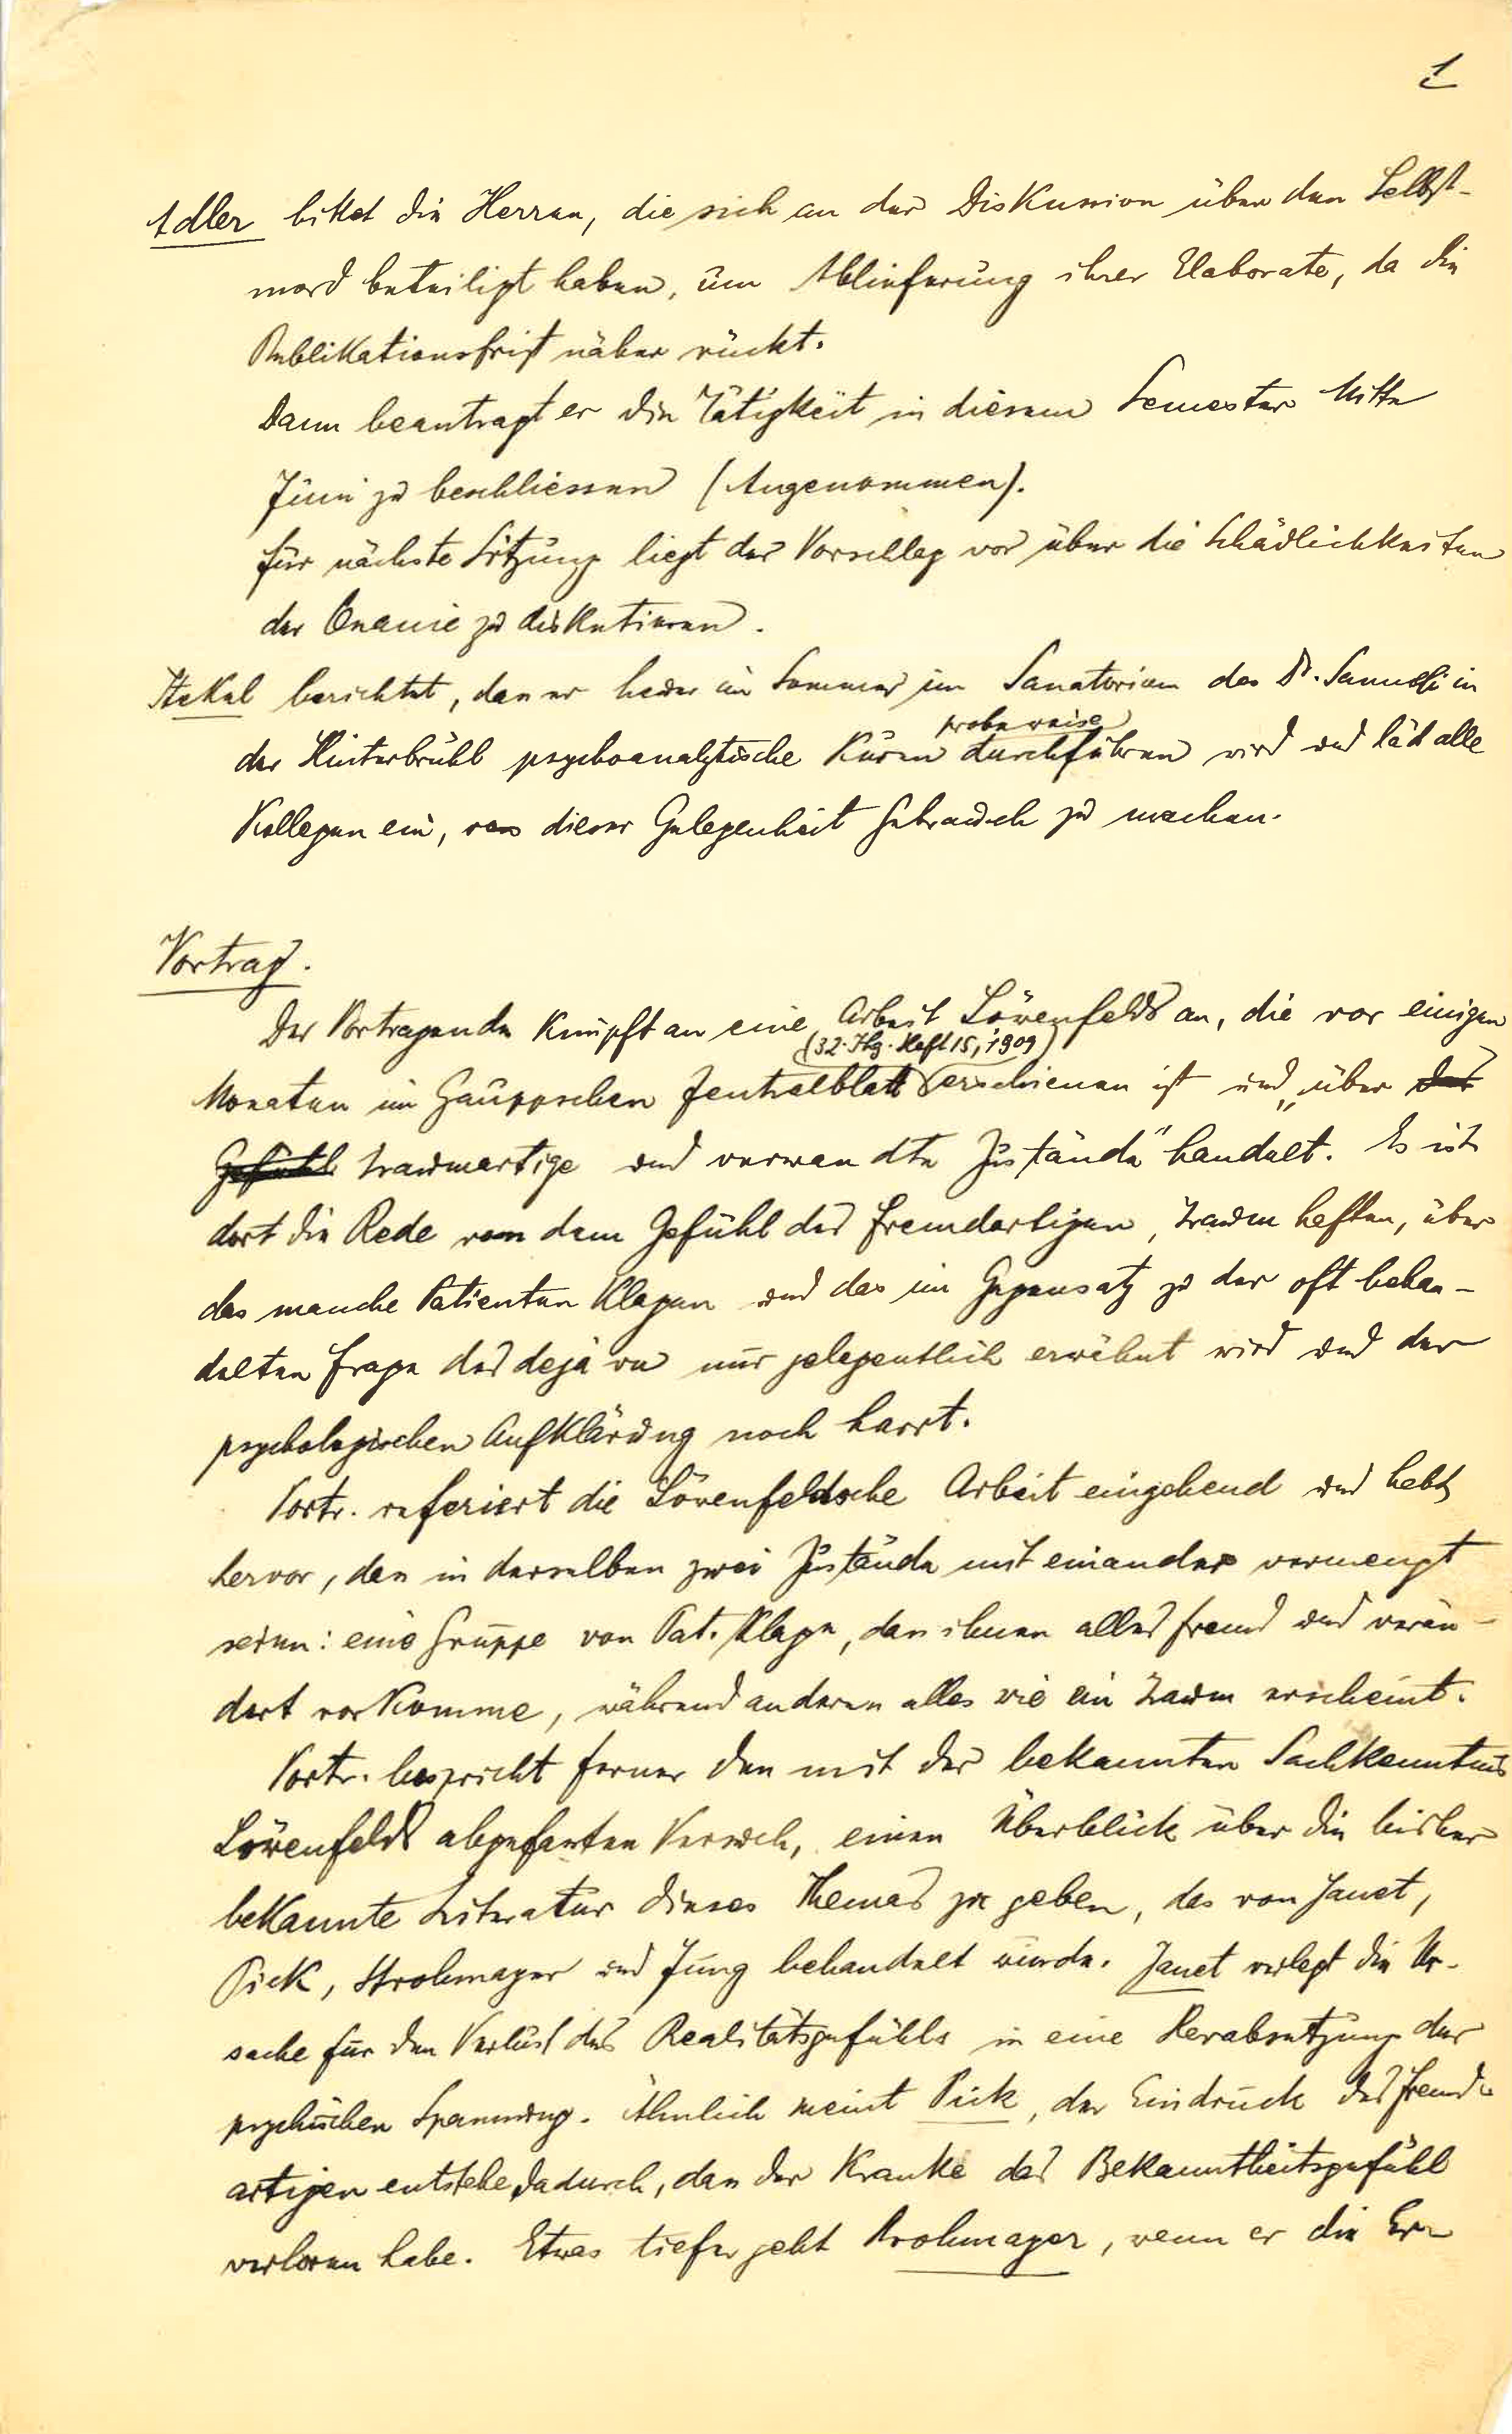 1
Adler bittet die Herren, die sich an der Diskussion über den Selbst-
mord beteiligt haben, um Ablieferung ihrer Elaborate, da die
Publikationsfrist näher rückt.
Dann beantragt er die Tätigkeit in diesem Semester Mitte
Juni zu beschliessen (Angenommen).
Für nächste Sitzung liegt der Vorschlag vor über die Schädlichkeiten
der Onanie zu diskutieren.
Stekel berichtet, dass er heuer im Sommer im Sanatorium des Dr. in
probeweise
der Hinterbrühl psychoanalytische Kuren durchführen wird und läd alle
Kollegen ein, von dieser Gelegenheit Gebrauch zu machen.
Vortrag.
Der Vortragende knüpft an eine Arbeit Löwenfelds an, die vor einigen
(32. Jhg. Heft 15, 1909)
Monaten im Gauppschen Zentralblatt erschienen ist und „über das
Gefühl traumartige und verwandte Zustände" handelt. Es ist
dort die Rede von dem Gefühl des Fremdartigen, Traumhaften, über
das manche Patienten klagen und das im Gegensatz zu der oft behan-
delten Frage des dejà vu nur gelegentlich erwähnt wird und der
psychologischen Aufklärung noch harrt.
Vortr. referiert die Löwenfeldsche Arbeit eingehend und hebt
hervor, dass in derselben zwei Zustände mit einander vermengt
seien: eine Gruppe von Pat. klage, dass ihnen alles fremd und verän-
dert vorkomme, während anderen alles wie ein Traum erscheint.
Vortr. bespricht ferner den mit der bekannten Sachkenntnis
Löwenfelds abgefassten Versuch, einen Überblick über die bisher
bekannte Literatur dieses Themas zu geben, das von Janet,
Pick, Strohmayer und Jung behandelt wurde. Janet verlegt die Ur-
sache für den Verlust des Realitätsgefühls in eine Herabsetzung der
psychischen Spannung. Ähnlich meint Pick, der Eindruck des Fremd-
artigen entstehe dadurch, dass der Kranke das Bekanntheitsgefühl
verloren habe. Etwas tiefer geht Strohmayer, wenn er die Er-